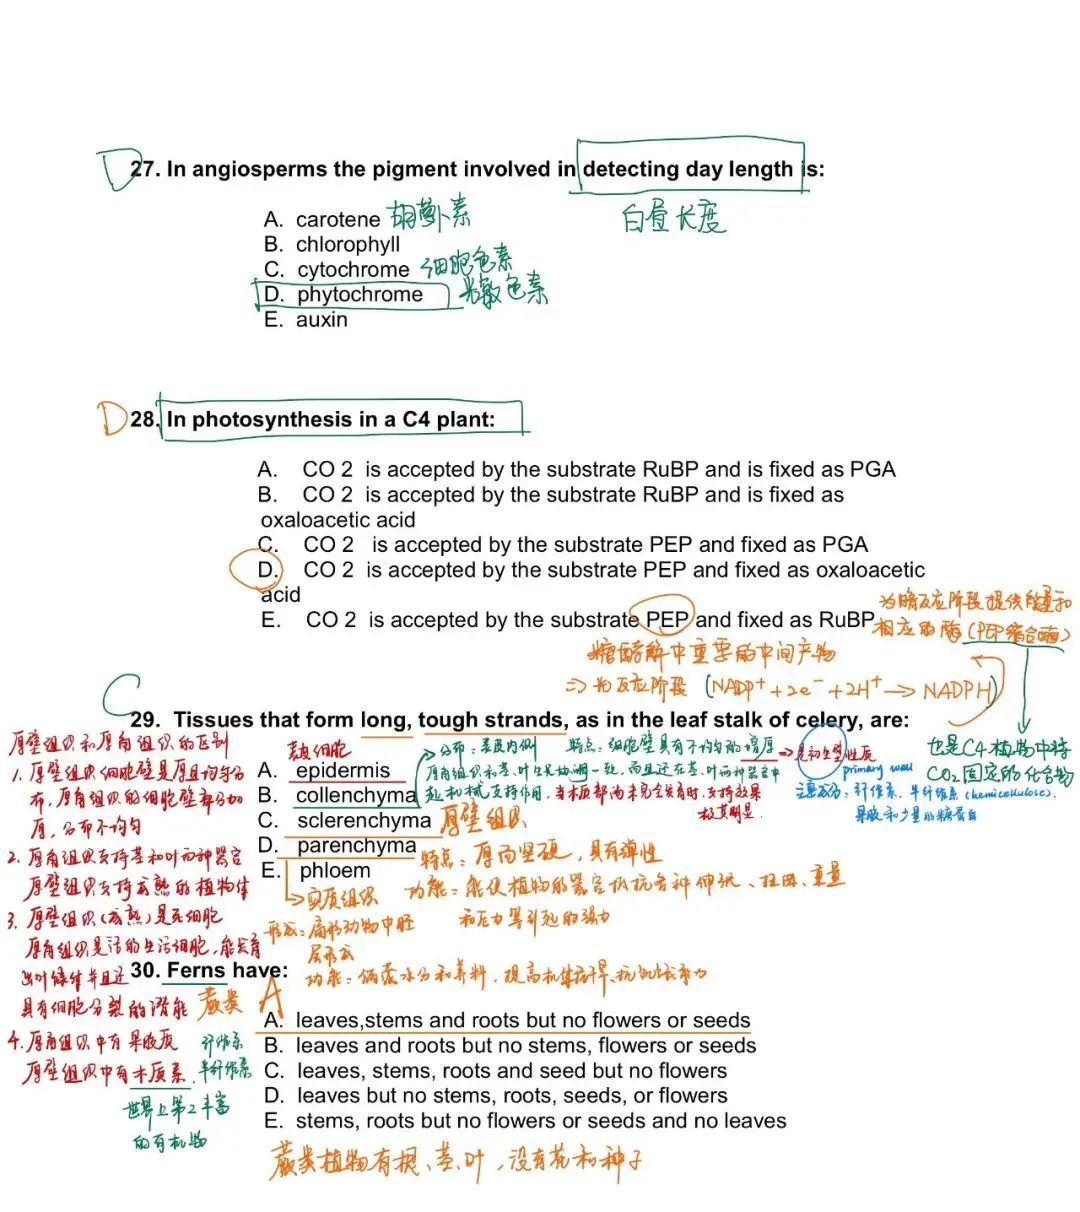 D
27. In angiosperms the pigment involved in detecting day length is:
白昼长度
A. carotene 胡萝卜素
B. chlorophyll
C. cytochrome 细胞色素
D. phytochrome 光敏色素
E. auxin
D
28. In photosynthesis in a C4 plant:
A. CO 2 is accepted by the substrate RuBP and is fixed as PGA
B. CO 2 is accepted by the substrate RuBP and is fixed as
oxaloacetic acid
C. CO 2 is accepted by the substrate PEP and fixed as PGA
D. CO 2 is accepted by the substrate PEP and fixed as oxaloacetic
acid
E. CO 2 is accepted by the substrate PEP and fixed as RuBP
为暗反应阶段提供能量和
相应的酶(PEP羧合酶)
糖酵解中重要的中间产物
⇒ 光反应阶段 (NADP⁺+2e⁻+2H⁺→NADPH)
也是C4植物中特
CO₂固定的化合物
C
29. Tissues that form long, tough strands, as in the leaf stalk of celery, are:
表皮细胞
A. epidermis
B. collenchyma
C. sclerenchyma 厚壁组织
D. parenchyma
E. phloem
→分布:表皮内侧 特点:细胞壁具有不均匀的增厚→是初生壁性质
primary wall
厚角组织和茎、叶生长相一致,而且还在茎、叶和器官中
起机械支持作用,当木质部尚未完全发育时,支持效果
极其明显.
主要成分:纤维素、半纤维素(hemicellulose).
果胶和少量的糖蛋白
特点:厚而坚硬,具有弹性
功能:能使植物的器官抵抗各种伸张、扭曲、重量
和压力等引起的张力
→实质组织
形成:扁形动物中胚
层形成
功能:储藏水分和养料,提高机体耐旱、抗饥饿能力
厚壁组织和厚角组织的区别
1. 厚壁组织细胞壁是厚且均匀分
布,厚角组织的细胞壁部分加
厚,分布不均匀
2. 厚角组织支持茎和叶而种器官
厚壁组织支持成熟的植物体
3. 厚壁组织(成熟)是死细胞
厚角组织是活的生活细胞,能发育
出叶绿体并且还
具有细胞分裂的潜能
4. 厚角组织中有果胶质 纤维素
厚壁组织中有木质素、半纤维素
世界上第2丰富
的有机物
30. Ferns have:
蕨类 A
A. leaves,stems and roots but no flowers or seeds
B. leaves and roots but no stems, flowers or seeds
C. leaves, stems, roots and seed but no flowers
D. leaves but no stems, roots, seeds, or flowers
E. stems, roots but no flowers or seeds and no leaves
蕨类植物有根、茎、叶,没有花和种子